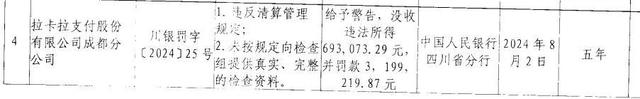 4
拉卡拉支付股份
有限公司成都分
公司
川银罚字
〔2024〕25 号
1. 违反清算管理
规定；
2. 未按规定向检查
组提供真实、完整
的检查资料。
给予警告，没收
违法所得
693,073.29 元，
并罚款 3, 199,
219.87 元
中国人民银行
四川省分行
2024 年 8
月 2 日
五年